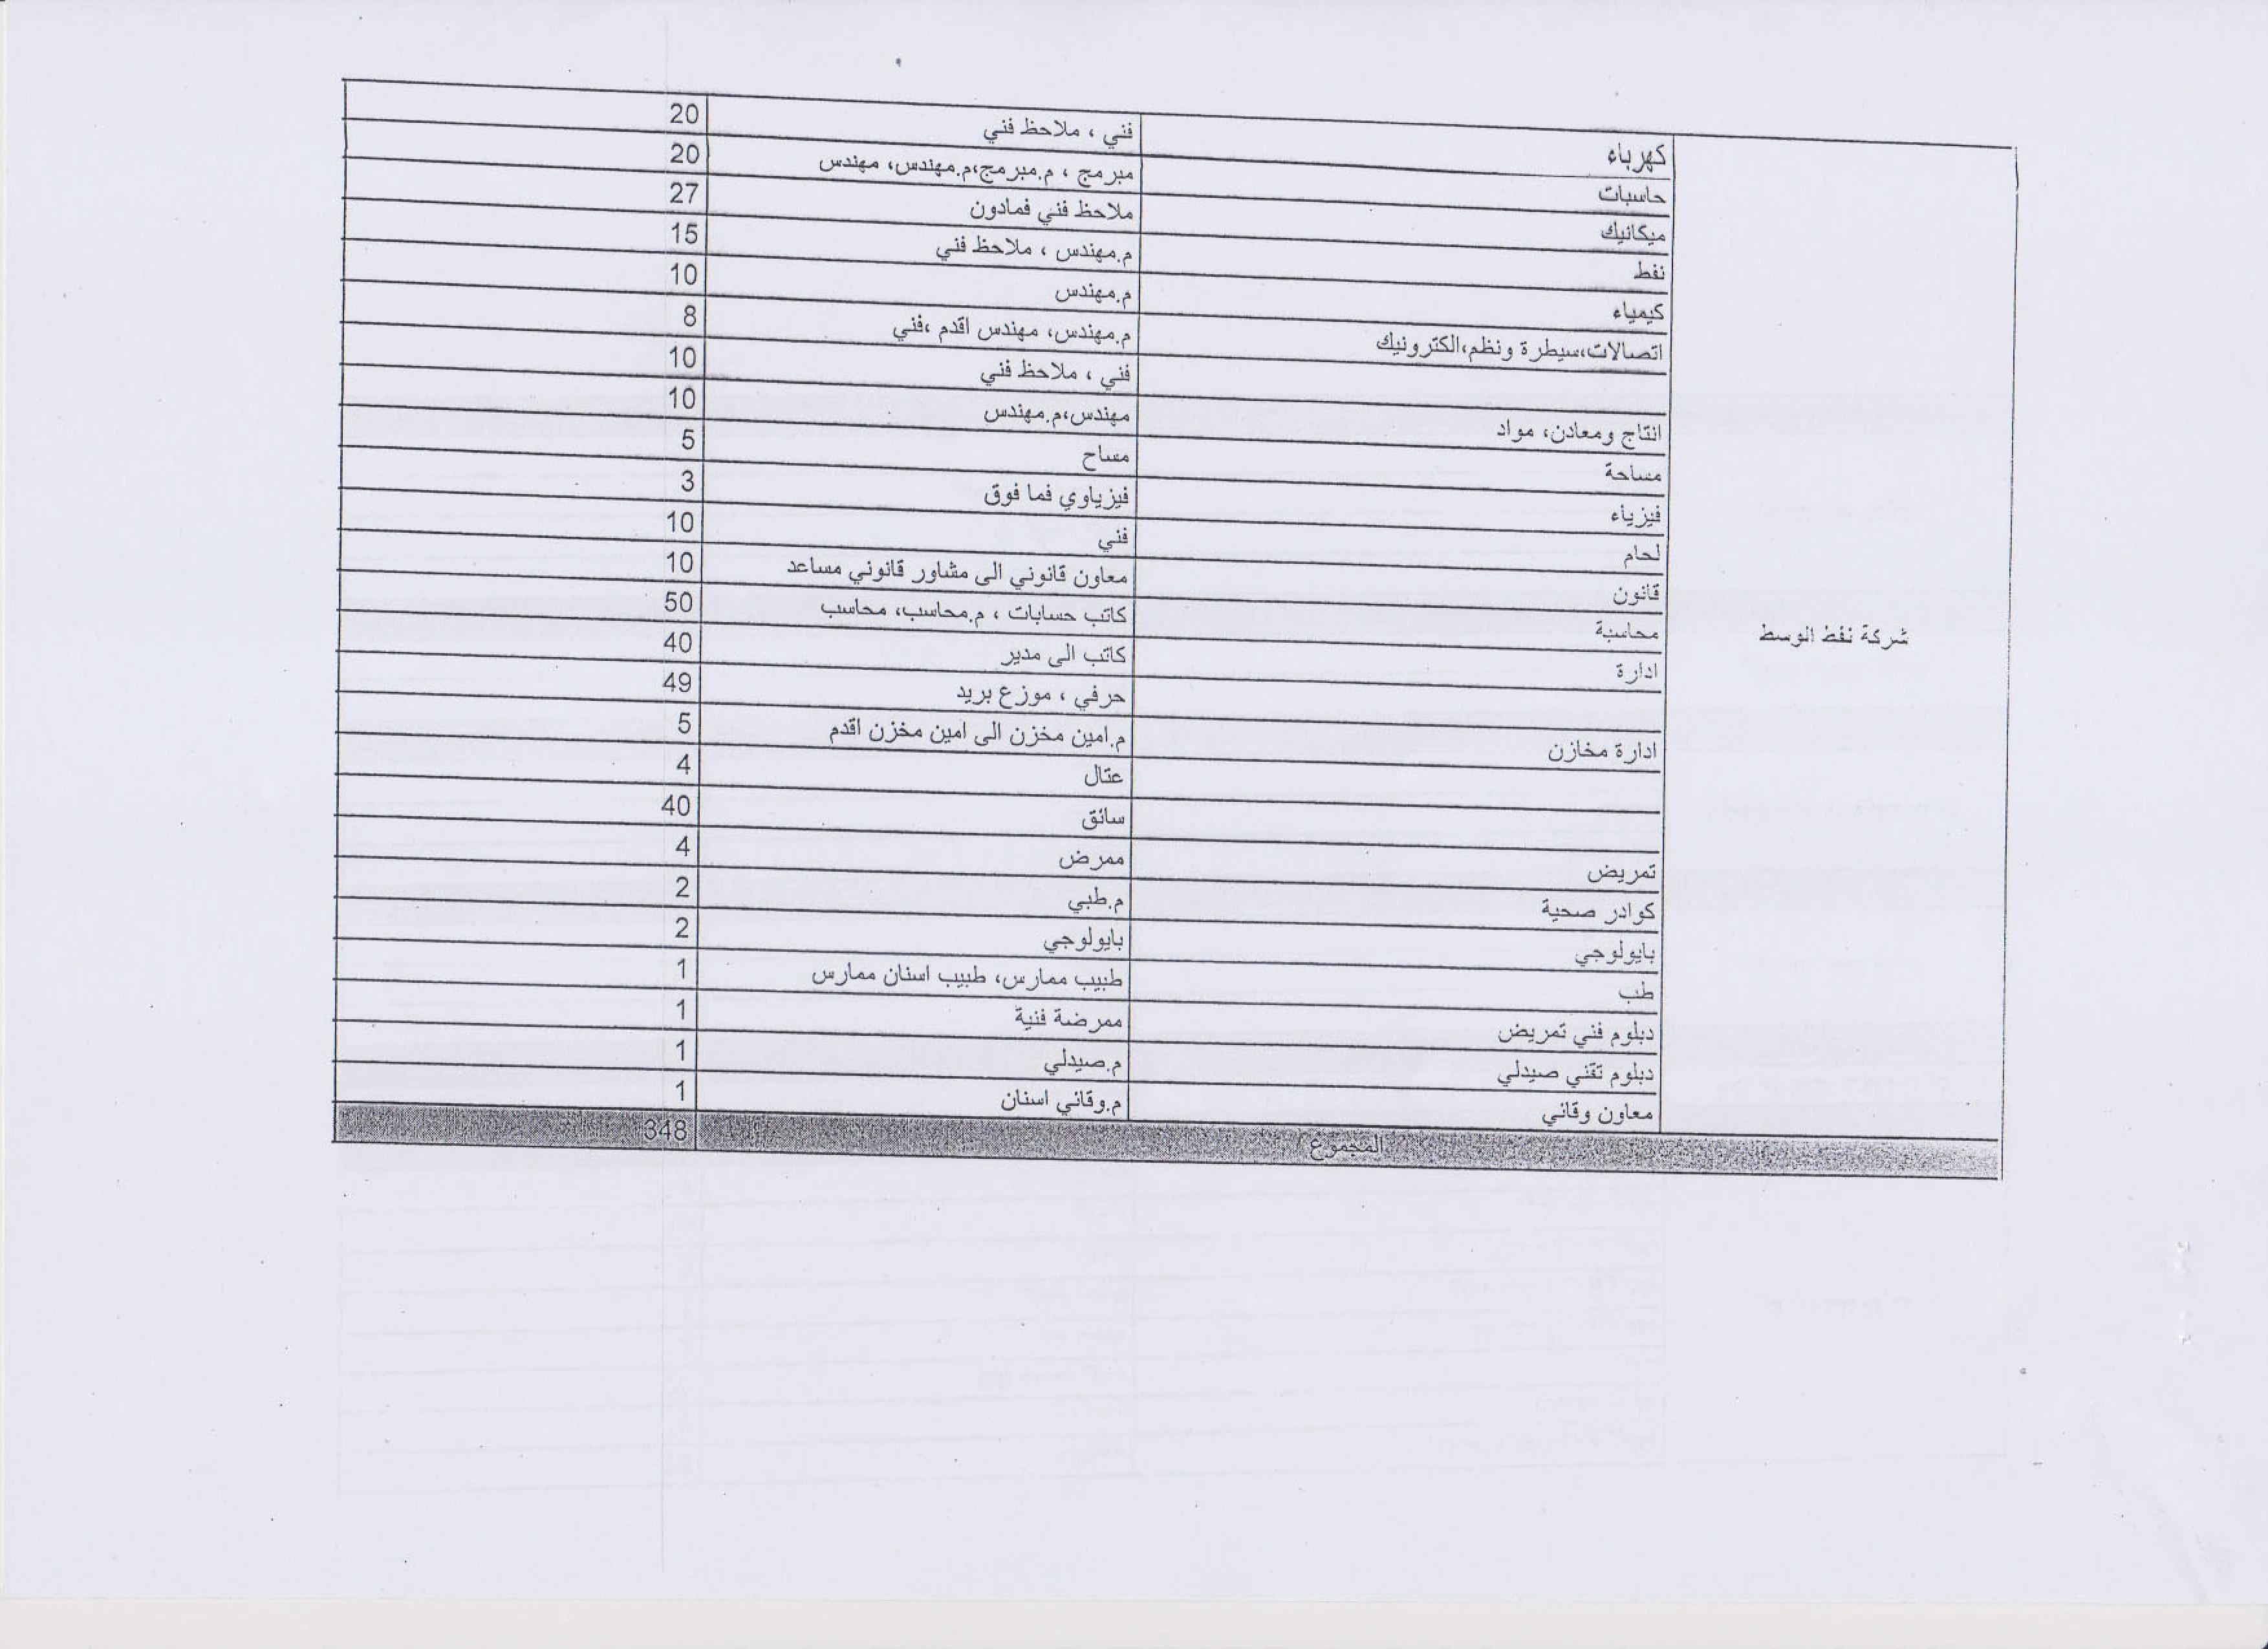 كهرباء فني ، ملاحظ فني 20
حاسبات مبرمج ، م.مبرمج،م.مهندس، مهندس 20
ميكانيك ملاحظ فني فمادون 27
نفط م.مهندس ، ملاحظ فني 15
كيمياء م.مهندس 10
اتصالات،سيطرة ونظم،الكترونيك م.مهندس، مهندس اقدم ،فني 8
فني ، ملاحظ فني 10
انتاج ومعادن، مواد مهندس،م.مهندس 10
مساحة مساح 5
فيزياء فيزياوي فما فوق 3
لحام فني 10
قانون معاون قانوني الى مشاور قانوني مساعد 10
شركة نفط الوسط محاسبة كاتب حسابات ، م.محاسب، محاسب 50
ادارة كاتب الى مدير 40
حرفي ، موزع بريد 49
ادارة مخازن م.امين مخزن الى امين مخزن اقدم 5
عتال 4
سائق 40
تمريض ممرض 4
كوادر صحية م.طبي 2
بايولوجي بايولوجي 2
طب طبيب ممارس، طبيب اسنان ممارس 1
دبلوم فني تمريض ممرضة فنية 1
دبلوم تقني صيدلي م.صيدلي 1
معاون وقائي م.وقائي اسنان 1
المجموع 348